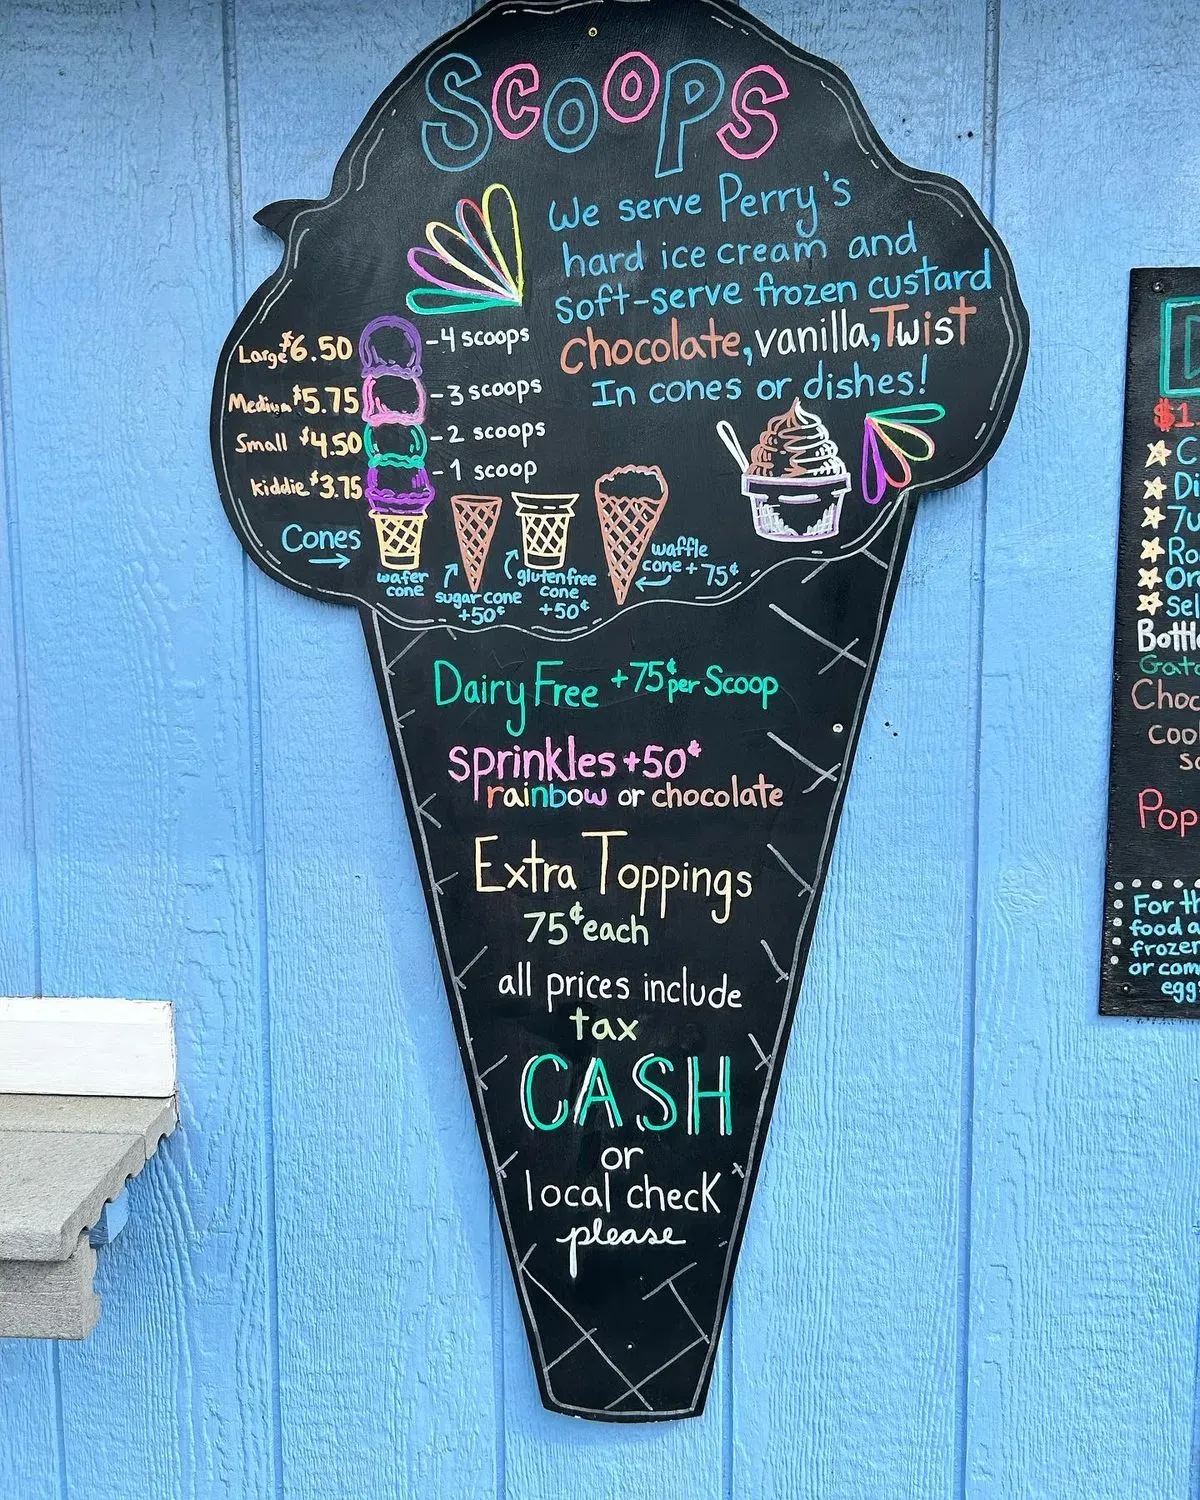 Scoops
We serve Perry's
hard ice cream and
soft-serve frozen custard
Chocolate, vanilla, Twist
In cones or dishes!
Large $6.50 - 4 scoops
Medium $5.75 - 3 scoops
Small $4.50 - 2 scoops
Kiddie $3.75 - 1 scoop
Cones
wafer
cone
sugar cone
+50¢
gluten free
cone
+50¢
waffle
cone + 75¢
Dairy Free +75¢ per Scoop
sprinkles +50¢
rainbow or chocolate
Extra Toppings
75¢ each
all prices include
tax
CASH
or
local check
please
$1.
C
Di
7u
Ro
Or
Sel
Bottle
Gat
Choc
Coo
Pop
For th
food a
frozen
or com
egg